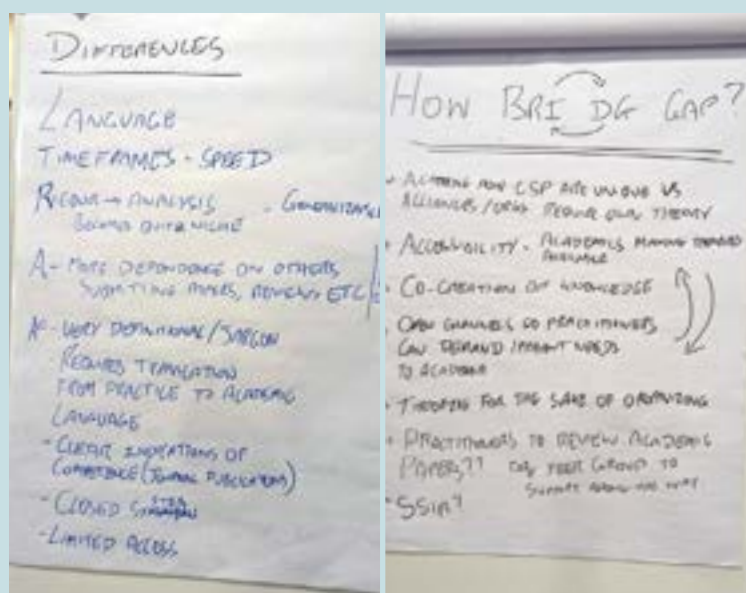 DIFFERENCES
LANGUAGE
TIMEFRAMES - SPEED
RIGOUR → ANALYSIS - GENERALIZABLE
BEYOND ONE NICHE
A - MORE DEPENDENCE ON OTHERS,
SUBMITTING PAPERS, REVIEWS ETC
A - VERY DEFINITIONAL / JARGON
REQUIRES TRANSLATION
FROM PRACTICE TO ACADEMIC
LANGUAGE
- CLEAR INDICATIONS OF
COMPETENCE (JOURNAL PUBLICATIONS)
- CLOSED SYSTEM
- LIMITED ACCESS
HOW BRIDG GAP?
CSP ARE UNIQUE VS
ALLIANCES / ORGS REQUIRE OWN THEORY
ACCESSIBILITY - ACADEMICS MAKING THEMSELVES
AVAILABLE
CO-CREATION OF KNOWLEDGE
OPEN CHANNELS SO PRACTITIONERS
CAN DEMAND / IMPRINT NEEDS
TO ACADEMIA
THEORIZING FOR THE SAKE OF THEORIZING
PRACTITIONERS TO REVIEW ACADEMIC
PAPERS?? PEER GROUP TO
SUPPORT
SSIR?